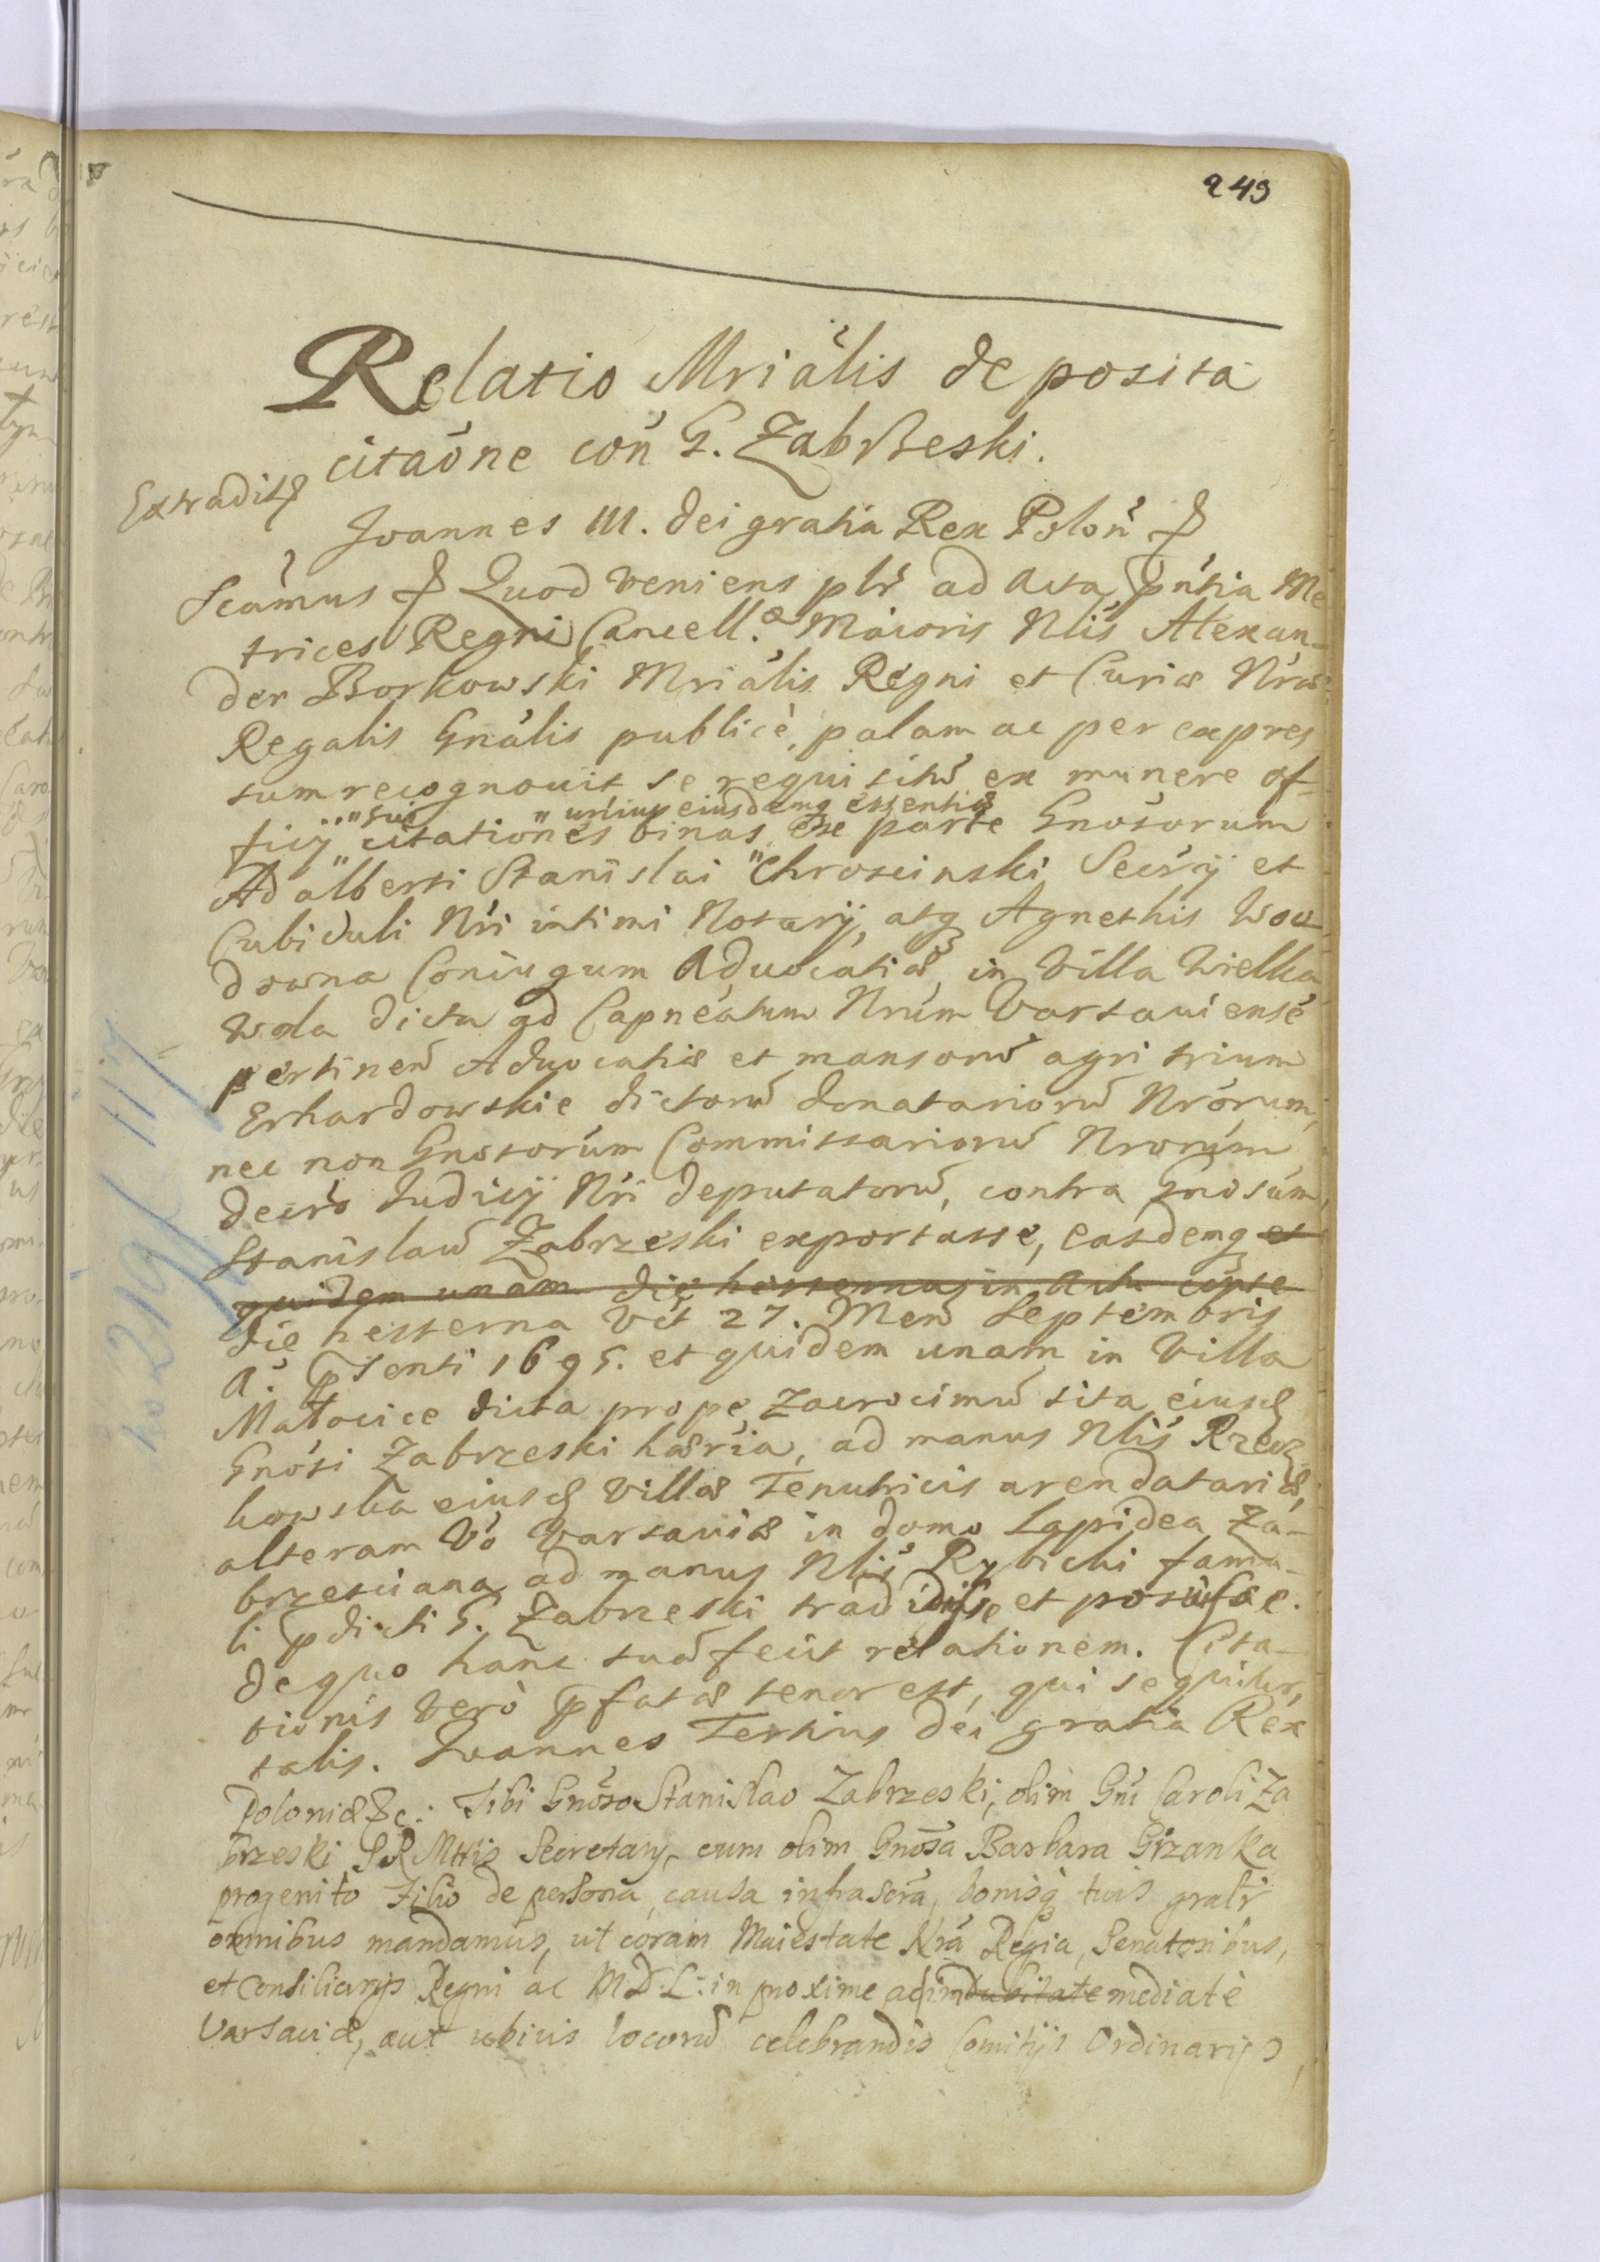 249
Relatio Mriális de posita
citaóne coń G. Zabrzeski.
Extradit
Joannes III. Dei gratia Rex Poloń
Scámus Quod veniens plr ad Acta pńtia Me
trices Regni Cancell. Maioris Nlis Alexan-
der Borkowski Mriális Regni et Curiæ Nræ
Regalis Gnális publicè, palam ac per expres
sum recognouit se requisitũ ex munere of-
sui unius eiusdemq essentiæ
ficij citationes binas ex parte Gnosorum
Adalberti Stanislai Chroscinski Secrij et
Cubiculi Nri intimi Notarij, atq Agnethis Wou
downa Coniugum Aduocatiæ in Villa Wielka
Wola dicta ad Capneatum Nrum Varsauiensé
pertineñ Aduocatiæ et mansorũ agri trium
Erhardowskie dictorũ donatariorũ Nrórum,
nec non Gnosorúm Commissariorũ Nrorúm
decró Judicij Nri deputatorũ, contra Gnosúm
Stanislaũ Zabrzeski exportasse, easdemq et
quidem unam die hesterna in
die hesterna vit 27. Meñ Septembris
A. psenti 1695. et quidem unam in Villa
Małocice dicta prope Zacrocimũ sita eiusd
Gnósi Zabrzeski hæria, ad manus Nlis Rzecz
kowska eiusd villæ Tenutricis arendatariæ,
alteram Vó Varsauiæ in domo Lapidea Za-
brzesciana ad manus Nlis Rybicki famu-
li pdicti G. Zabrzeski tradidisse et posuisse.
de quo hanc suã fecit relationem. Cita-
tionis verò pfatæ tenor est, qui sequitur,
talis. Joannes Tertius Dei gratia Rex
Poloniæ &c: Tibi Gnoso Stanislao Zabrzeski, olim Gni Caroli Za
brzeski S R Mttis Secretary, cum olim Gnosa Barbara Gizanka
progenito Filio de persona, causa infrascra, bonisq tuis gratr
omnibus mandamus, ut coram Maiestate Nrá Regia, Senatoribus,
et Consiliarijs Regni ac M D L: in proxime ac indubitate mediatè
Varsaviæ, aut ubiuis locorũ celebrandis Comitijs Ordinarijs,